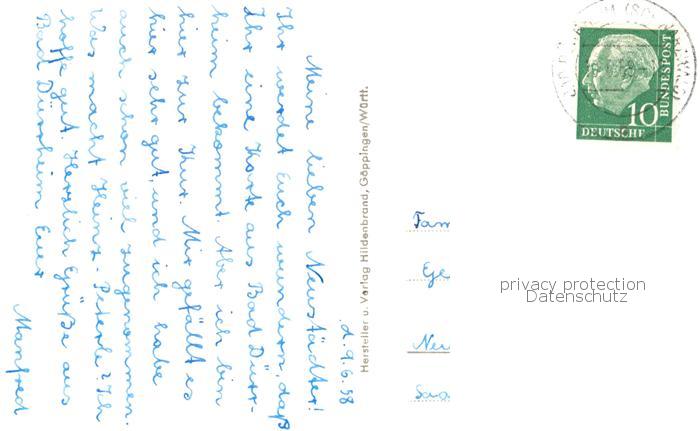 d. 9.6.58
Meine lieben Neustädter!
Ihr werdet Euch wundern, daß
Ihr eine Karte aus Bad Dürr-
heim bekommt. Aber ich bin
hier zur Kur. Mir gefällt es
hier sehr gut, und ich habe
auch schon viel zugenommen.
Was macht Heinz-Peterle? Ich
hoffe gut. Herzlich Grüße aus
Bad Dürrheim Euer
Manfred
Hersteller u. Verlag Hildenbrand, Göppingen/Württ.
10
DEUTSCHE
BUNDESPOST
Fam
Ege
Neu
Saa
privacy protection
Datenschutz